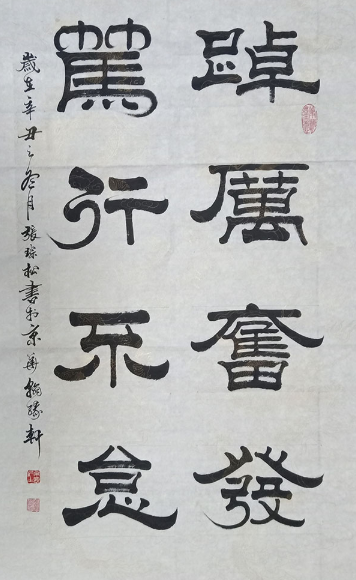 踔厲奮發
篤行不怠
歲在辛丑之冬月張琮松書於京華翰緣軒